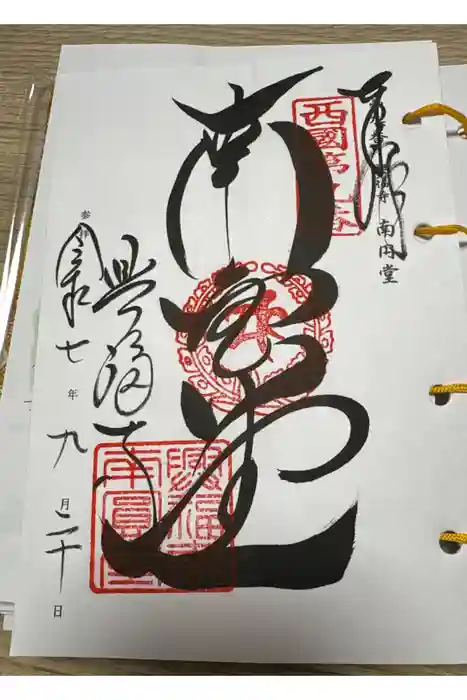 奉拝
南円堂
西國第九番
南円堂
興福寺
興福寺
南圓堂
参
令和七年九月二十日